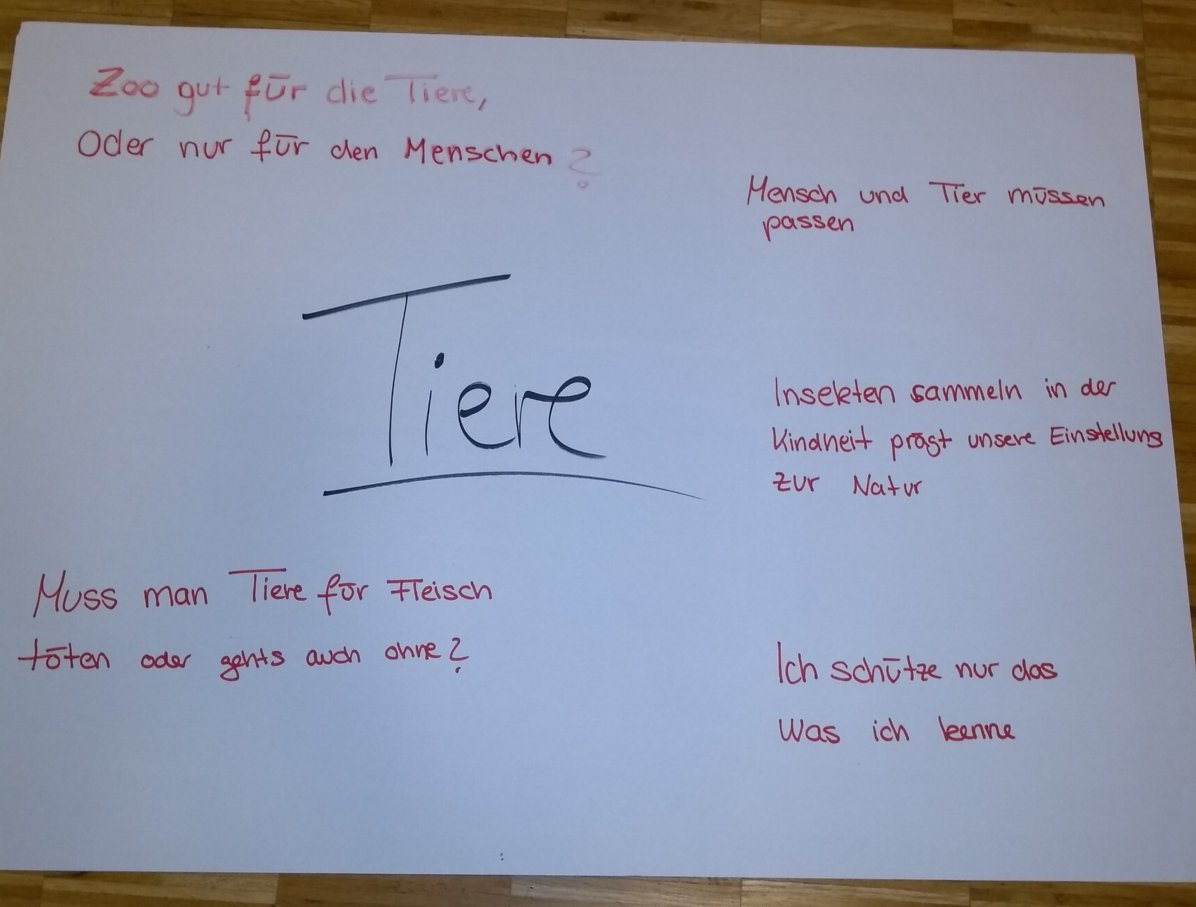 Zoo gut für die Tiere,
Oder nur für den Menschen?
Mensch und Tier müssen
passen
Tiere
Insekten sammeln in der
Kindheit prägt unsere Einstellung
zur Natur
Muss man Tiere für Fleisch
töten oder gehts auch ohne?
Ich schütze nur das
Was ich kenne